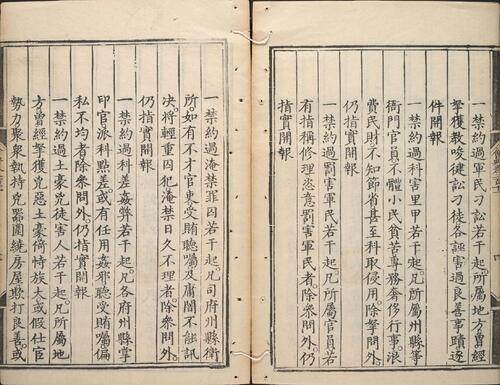 一禁約過軍民刁訟若干起凡所屬地方曾經
拏獲教唆徤訟刁徒各誣害過良善事蹟逐
件開報
一禁約過科害里甲若干起凡所屬州縣等
衙門官員不體小民貧苦專務奢侈行事浪
費民財不知節省甚至科取侵用除拏問外
仍指實開報
一禁約過罰害軍民若干起凡所屬官員若
有指稱修理恣意罰害軍民者除參問外仍
指實開報
一禁約過淹禁罪囚若干起凡司府州縣衛
所如有不才官吏受賄聽囑及庸闇不能訊
决將輕重囚犯淹禁日久不理者除參問外
仍指實開報
一禁約過科差姦弊若干起凡各府州縣掌
印官派科㸃差或有任用姦邪聽受賄囑偏
私不均者除參問外仍指實開報
一禁約過土豪兇徒害人若干起凡所屬地
方曾經拏獲兇惡土豪倚恃族大或假仕宦
勢力聚衆執持兇器圍繞房屋欺打良善或